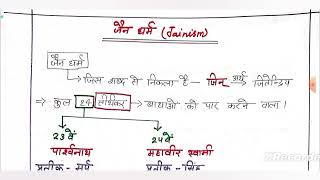 जैन धर्म (Jainism)
जैन धर्म
जिस शब्द से निकला है - जिन् अर्थ जितेन्द्रिय
⇒ कुल 24 तीर्थंकर बाधाओं को पार करने वाला।
23 वें 24 वें
पार्श्वनाथ महावीर स्वामी
प्रतीक - सर्प प्रतीक - सिंह